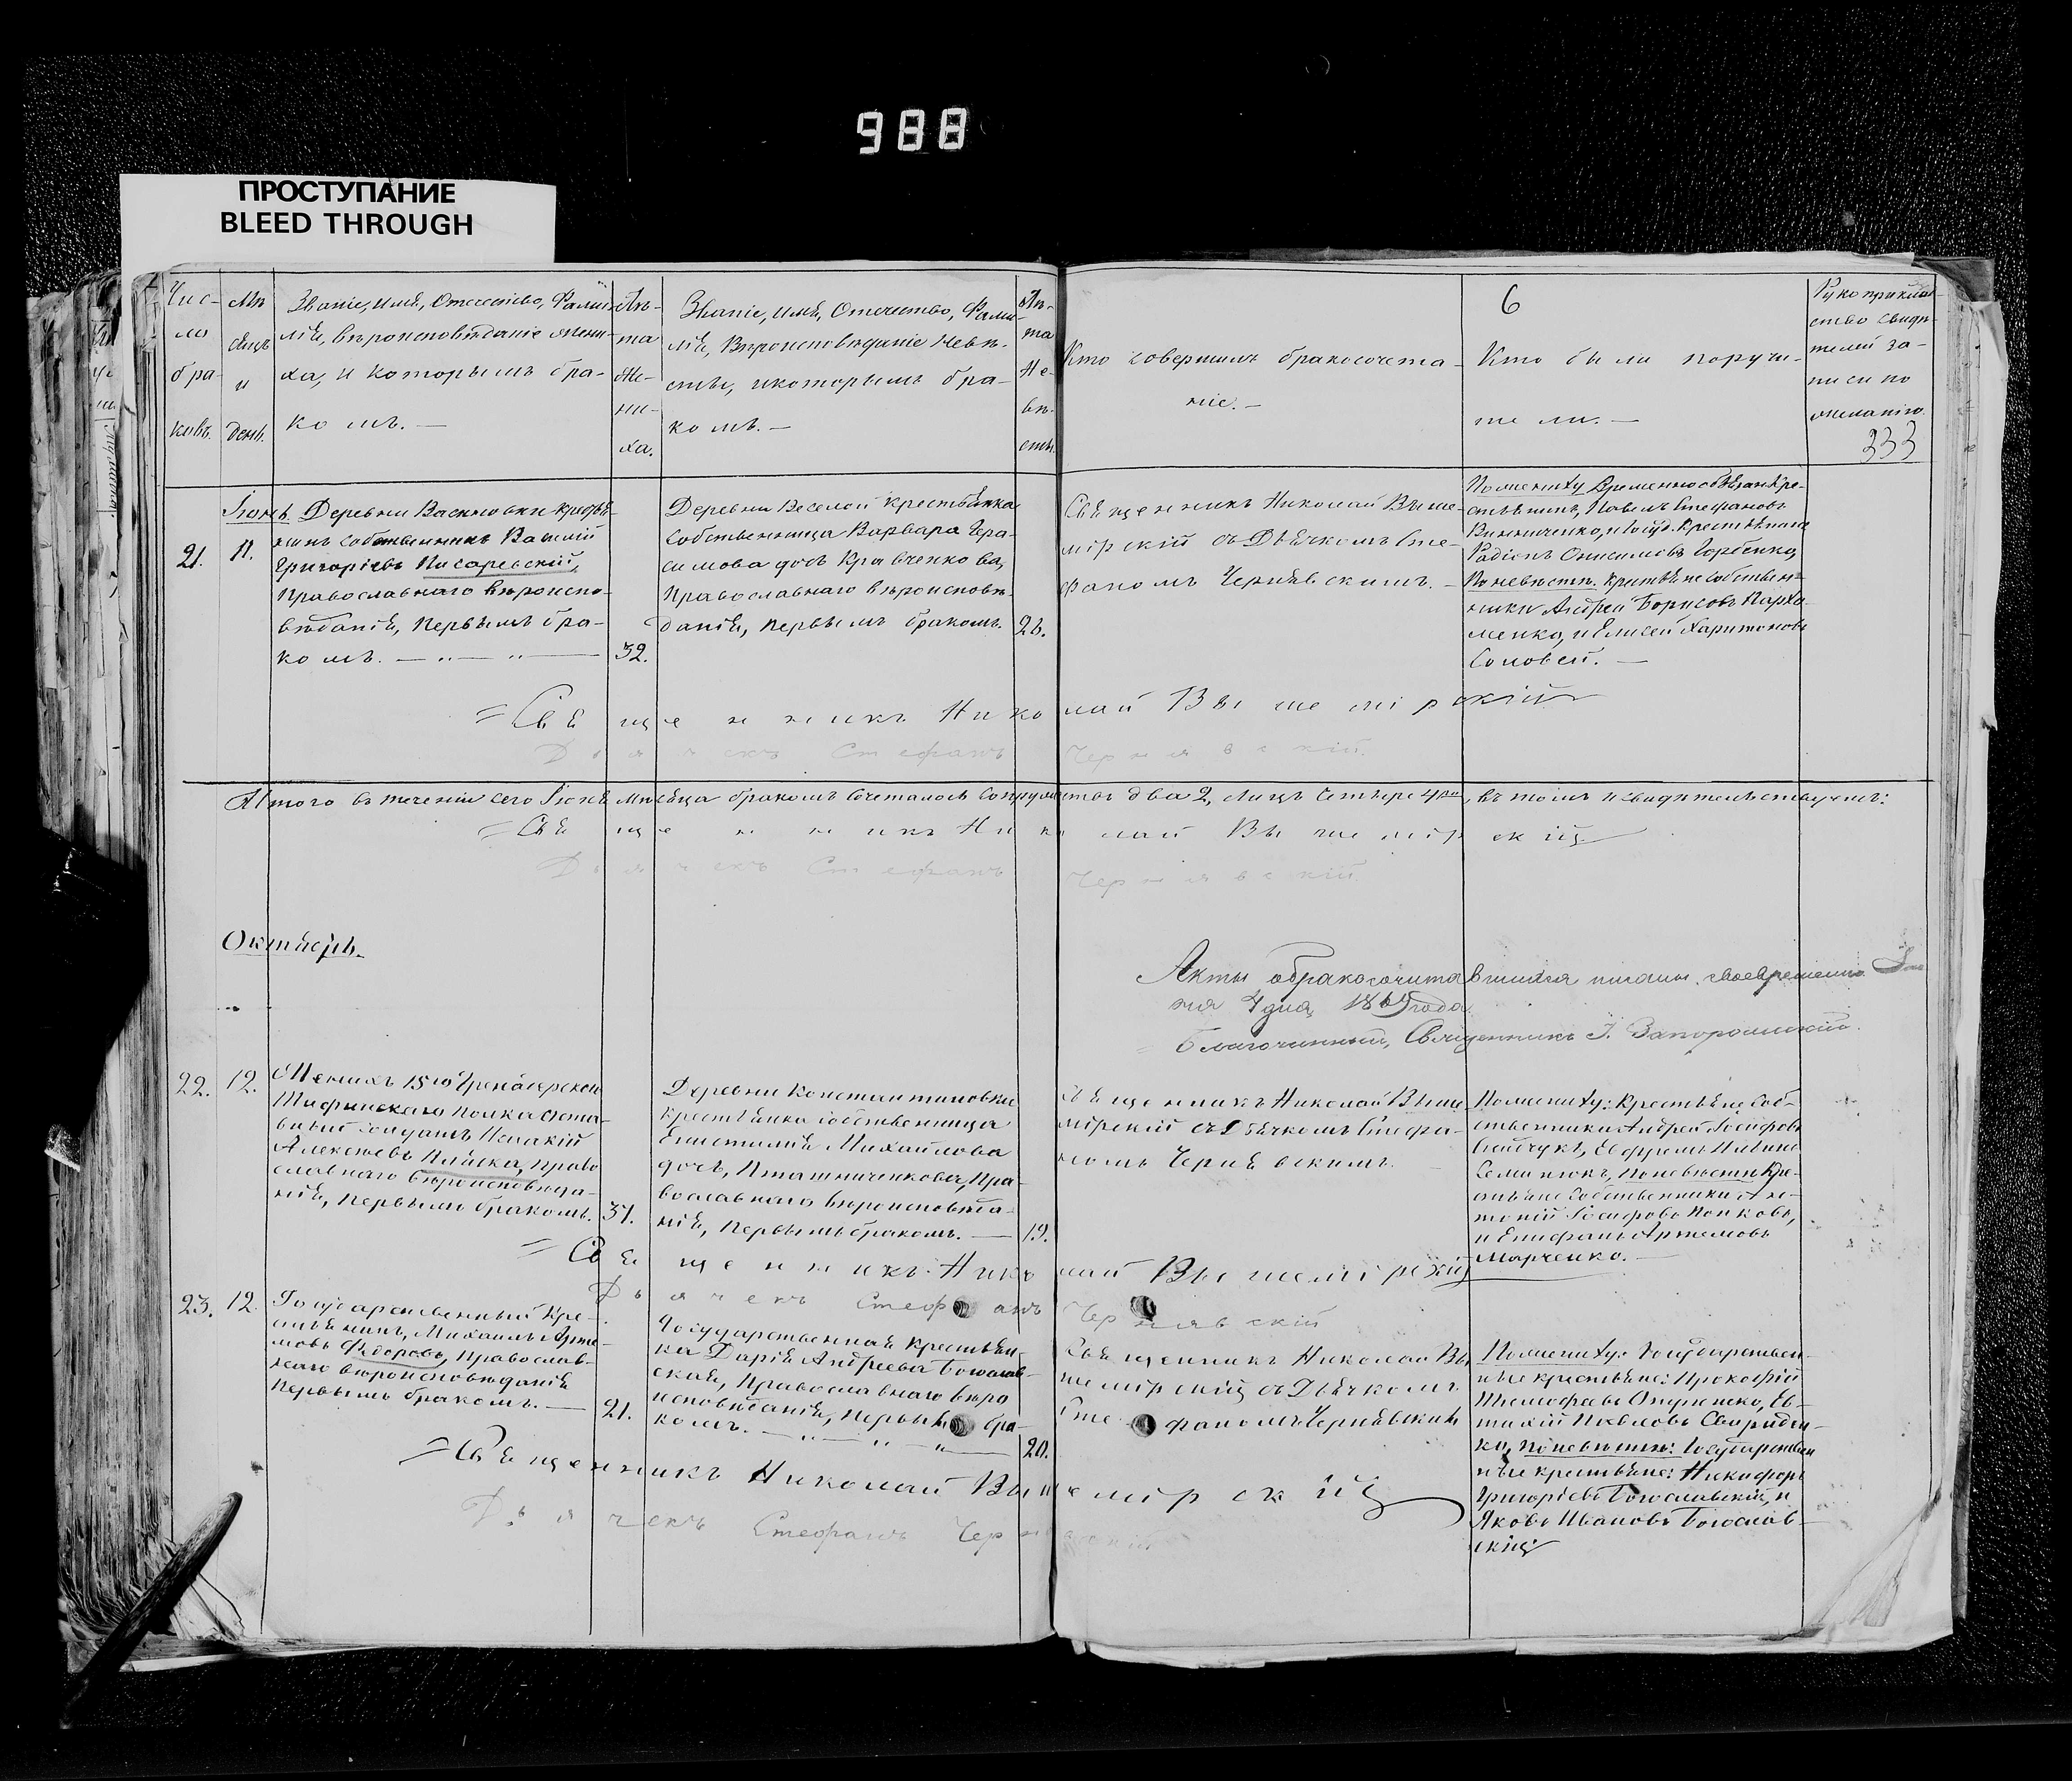 988
ПРОСТУПАНИЕ
BLEED THROUGH
Чис-
ло
бра-
ковъ.
Мѣ
сяцъ
и
день.
Званіе, имя, Отечество, Фами-
лія, вѣроисповѣданіе жени-
ха, и которымъ бра-
комъ. —
Лѣ-
та
Же-
ни-
ха.
Званіе, имя, Отечество, Фами-
лія, Вѣроисповѣданіе Невѣ-
сты, и которымъ бра-
комъ. —
Лѣ-
та
Не-
вѣ-
сты.
Кто совершилъ бракосочета-
ніе. —
6
Кто были поручи-
тели. —
Рукоприклад-
ство свидѣ-
телей за-
писи по
желанію.
333
Іюнь.
21.
11.
Деревни Васиновки крестья-
нинъ собственникъ Василій
Григоріевъ Писаревскій,
Православнаго вѣроиспо-
вѣданія, Первымъ бра-
комъ. — „ — „ —
32.
Деревни Веселой крестьянка
Собственница Варвара Гера-
симова дочь Кравченкова,
Православнаго вѣроисповѣ-
данія, Первымъ бракомъ.
26.
Священникъ Николай Выше-
мірскій съ Дьячкомъ Сте-
фаномъ Чернявскимъ. —
По жениху Временнообязан. Кре-
стьянинъ, Павелъ Стефановъ
Винниченко, и Госуд. Крестьянинъ
Радіонъ Онисимовъ Горбенко,
По невѣстѣ: крестьяне собствен-
ники Андрей Борисовъ Пархо-
менко, и Елисей Харитоновъ
Соловей. —
Священникъ Николай Вышемірскій
Дьячекъ Стефанъ Чернявскій
Итого въ теченіи сего Іюня Мѣсяца бракомъ сочеталось супружествъ два 2, лицъ Четыре 4ре, въ томъ и свидѣтельствуемъ:
Священникъ Николай Вышемірскій
Дьячекъ Стефанъ Чернявскій
Октябрь.
Акты о бракосочитавшихся писаны своевременно
ня 4 дня 186 года
Благочинный, Священникъ І. Запорожскій.
22.
12.
Женихъ 15го Гренадерскаго
Тифлисскаго полка отста-
вный солдатъ Исаакій
Алексѣевъ Право
славнаго вѣроисповѣда-
нія, Первымъ бракомъ.
31.
Деревни Константиновки
Крестьянка собственница
Епистимія Михайлова
дочь, Пташниченкова, Пра-
вославнаго вѣроисповѣда-
нія, Первымъ бракомъ. —
19.
Священникъ Николай Выше
мірскій съ Дьячкомъ Стефа-
номъ Чернявскимъ. —
По жениху: Крестьяне соб-
ственники Андрей Іосифовъ
Ефремъ
Семинюкъ, По невѣстѣ Кре-
стьяне собственники: Ан-
тоній Іосифовъ Попковъ,
и Епифанъ Артемовъ
Марченко. —
Священникъ Николай Вышемірскій
Дьячекъ Стефанъ Чернявскій
23.
12.
Государственный Кре-
стьянинъ, Михаилъ Арте-
мовъ Федоровъ, Православ-
наго вѣроисповѣданія
Первымъ бракомъ. —
21.
Государственная Крестьян-
ка Дарія Андреева Богослав-
ская, Православнаго вѣро
исповѣданія, Первымъ бра-
комъ. — „ — „ — „ —
20.
Священникъ Николай Вы
шемірскій съ Дьячкомъ
Стефаномъ Чернявскимъ
По жениху: Государствен-
ные крестьяне: Прокофій
Тимофѣевъ Ев-
тихій Павловъ Свириден-
ко, По невѣстѣ: Государствен
ные крестьяне: Никифоръ
Григоріевъ Богославскій, и
Яковъ Ивановъ Богослав-
скій
Священникъ Николай Вышемірскій
Дьячекъ Стефанъ Чернявскій